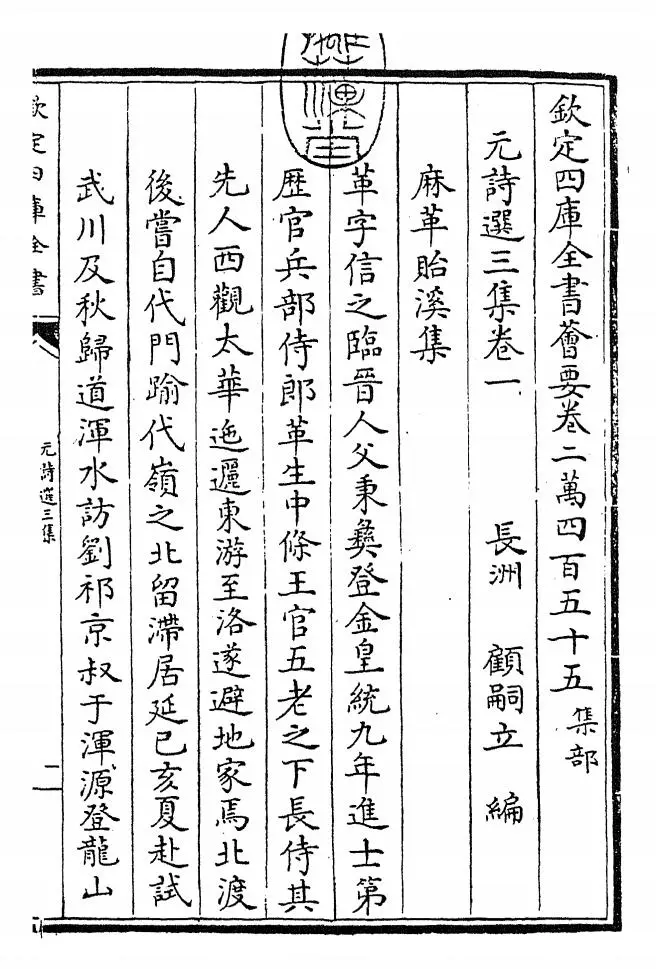 欽定四庫全書薈要卷二萬四百五十五 集部
元詩選三集卷一
長洲 顧嗣立 編
麻革貽溪集
革字信之臨晉人父秉彝登金皇統九年進士第
歷官兵部侍郎革生中條王官五老之下長侍其
先人西觀太華迤邐東游至洛遂避地家焉北渡
後嘗自代門踰代嶺之北留滯居延己亥夏赴試
武川及秋歸道渾水訪劉祁京叔于渾源登龍山
欽定四庫全書
元詩選三集
二